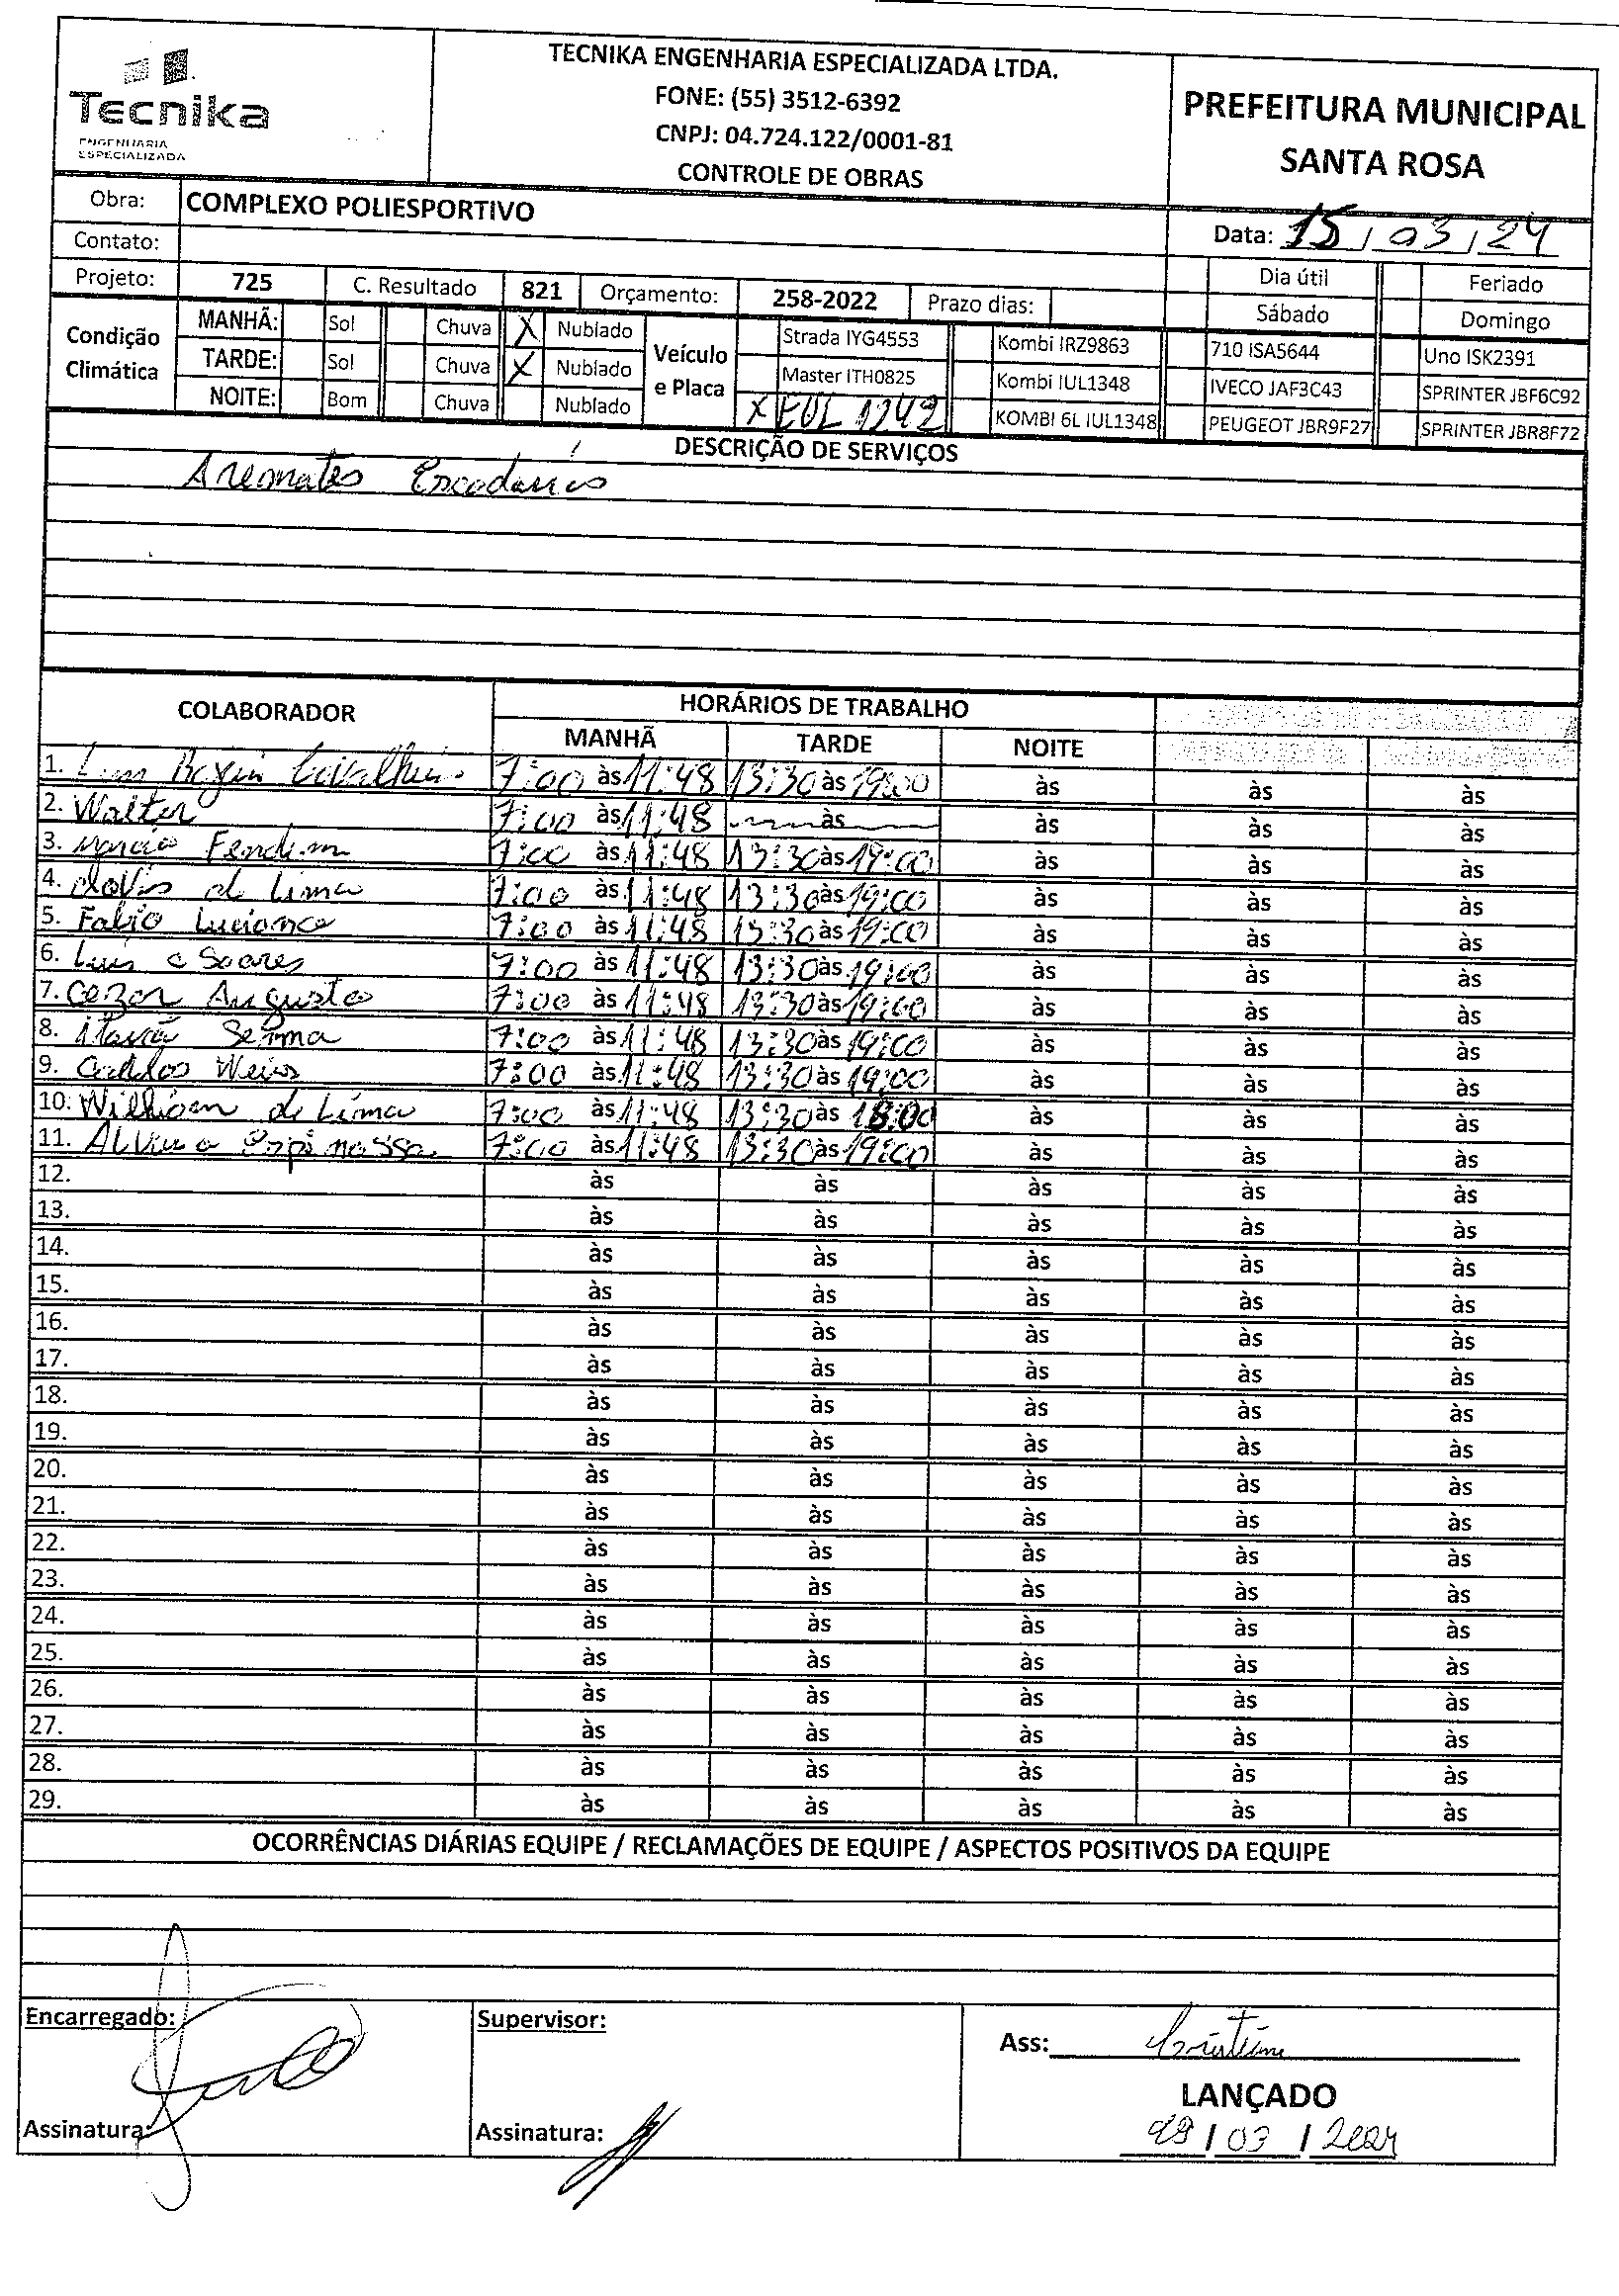 Tecnika
ENGENHARIA
ESPECIALIZADA
TECNIKA ENGENHARIA ESPECIALIZADA LTDA.
FONE: (55) 3512-6392
CNPJ: 04.724.122/0001-81
CONTROLE DE OBRAS
PREFEITURA MUNICIPAL
SANTA ROSA
Obra: COMPLEXO POLIESPORTIVO
Data: 15/03/24
Contato:
Projeto: 725 C. Resultado 821 Orçamento: 258-2022 Prazo dias: Dia útil Feriado
Sábado Domingo
Condição Climática
MANHÃ: Sol Chuva X Nublado
TARDE: Sol Chuva X Nublado
NOITE: Bom Chuva Nublado
Veículo e Placa
Strada IYG4553 Kombi IRZ9863 710 ISA5644 Uno ISK2391
Master ITH0825 Kombi IUL1348 IVECO JAF3C43 SPRINTER JBF6C92
X 1242 KOMBI 6L IUL1348 PEUGEOT JBR9F27 SPRINTER JBR8F72
DESCRIÇÃO DE SERVIÇOS
COLABORADOR HORÁRIOS DE TRABALHO
MANHÃ TARDE NOITE
1. 7:00 às 11:48 13:30 às 19:00 às às às
2. Walter 7:00 às 11:48 às às às às
3. 7:00 às 11:48 13:30 às 19:00 às às às
4. de Lima 7:00 às 11:48 13:30 às 19:00 às às às
5. Fabio Luciano 7:00 às 11:48 13:30 às 19:00 às às às
6. Luis Soares 7:00 às 11:48 13:30 às 19:00 às às às
7. Cezar Augusto 7:00 às 11:48 13:30 às 19:00 às às às
8. 7:00 às 11:48 13:30 às 19:00 às às às
9. 7:00 às 11:48 13:30 às 19:00 às às às
10. Willian de Lima 7:00 às 11:48 13:30 às 18:00 às às às
11. 7:00 às 11:48 13:30 às 19:00 às às às
12. às às às às às
13. às às às às às
14. às às às às às
15. às às às às às
16. às às às às às
17. às às às às às
18. às às às às às
19. às às às às às
20. às às às às às
21. às às às às às
22. às às às às às
23. às às às às às
24. às às às às às
25. às às às às às
26. às às às às às
27. às às às às às
28. às às às às às
29. às às às às às
OCORRÊNCIAS DIÁRIAS EQUIPE / RECLAMAÇÕES DE EQUIPE / ASPECTOS POSITIVOS DA EQUIPE
Encarregado: Supervisor: Ass:
LANÇADO
Assinatura: Assinatura: /03/2024